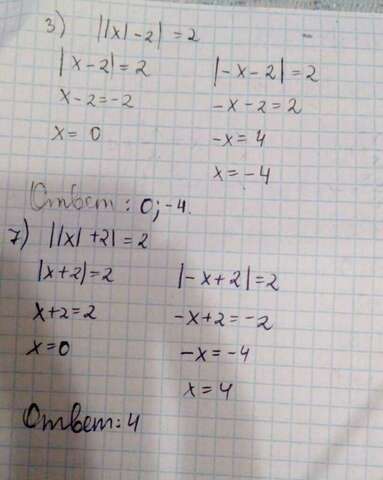 3) ||x|-2| = 2
|x-2| = 2 |-x-2| = 2
x-2=-2 -x-2=2
x=0 -x=4
x=-4
Ответ: 0; -4.
7) ||x|+2| = 2
|x+2|=2 |-x+2|=2
x+2=2 -x+2=-2
x=0 -x=-4
x=4
Ответ: 4